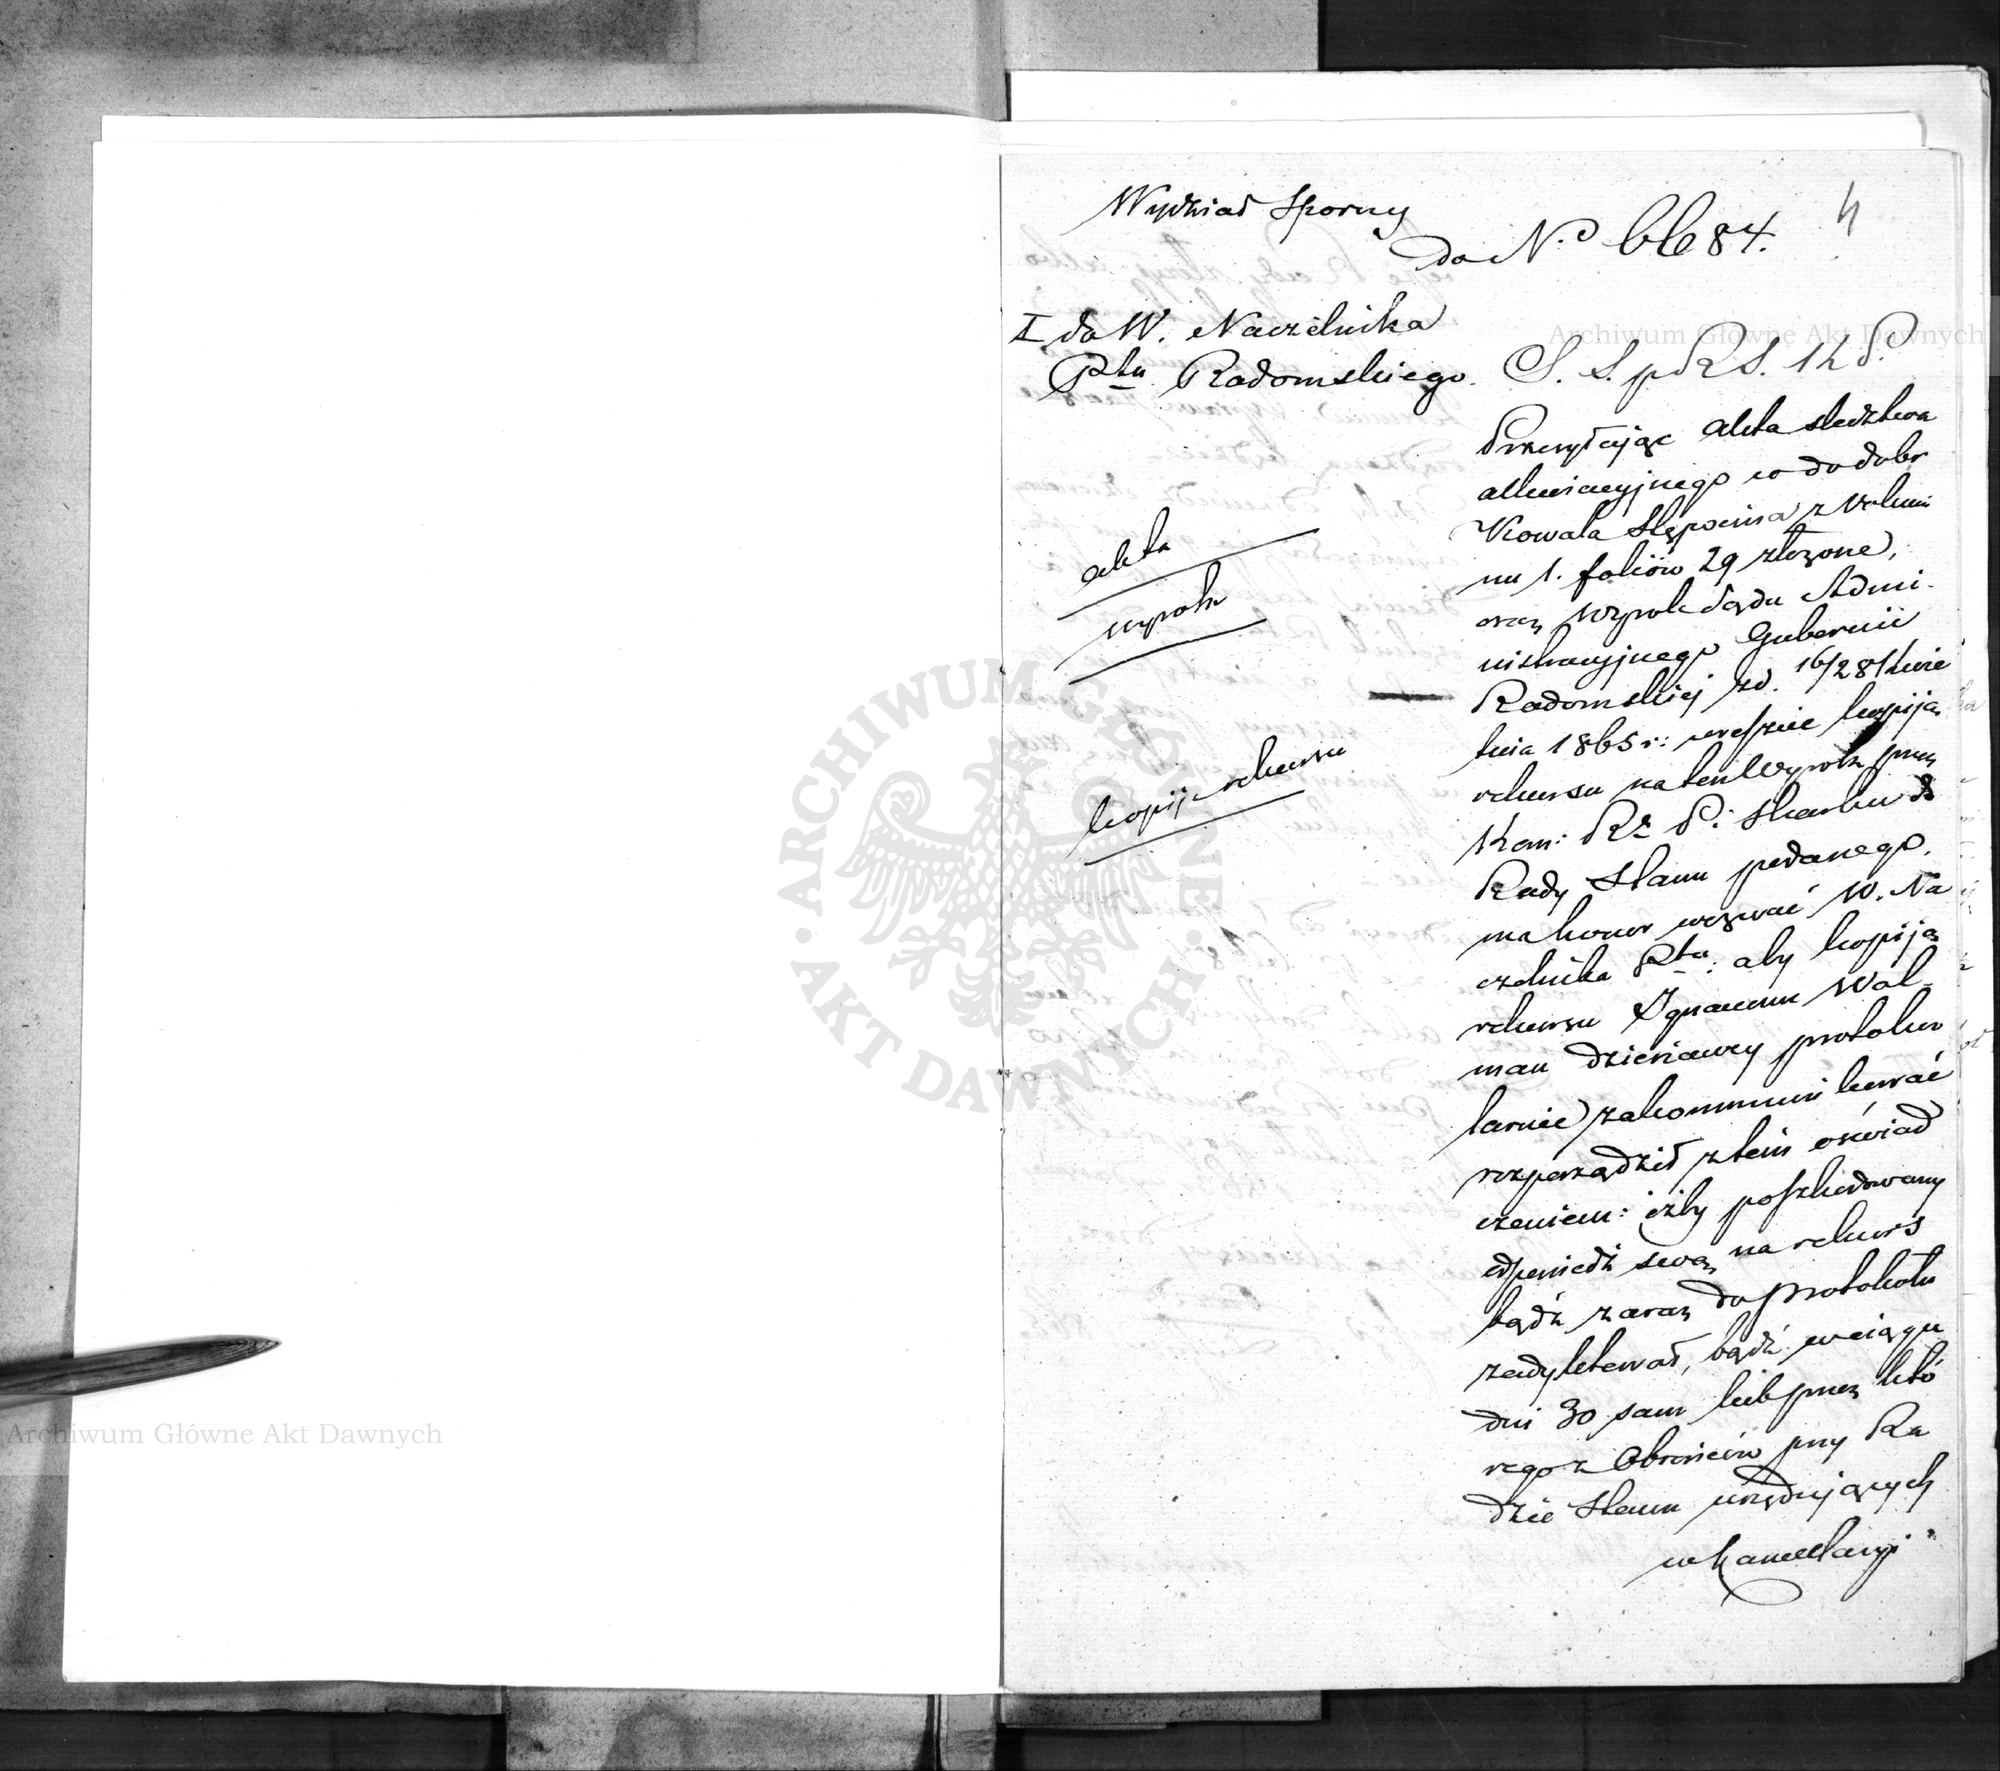 4
Wydział Sporny
do N.o 6684.
I do W. Naczelnika
Ptu Radomskiego.
S. S. p R S. K P.
Przesyłając akta śledztwa
alluwiacyjnego co do dobr
Kowala Stępocina z Volumi
nu 1. foliów 29 złożone,
oraz wyrok Sądu Admi-
nistracyjnego Gubernii
Radomskiej z d. 16/28 Kwie
tnia 1865 r: wreszcie kopiją
rekursu na ten Wyrok przez
Kom: Rz P. i Skarbu do
Rady Stanu podanego,
ma honor wezwać W. Na
czelnika Ptu: aby kopiją
rekursu Ignacemu Wol-
man dzierżawcy protoku
larnie zakommunikować
rozporządził z tém oświad
czeniem: iżby poszkodowany
odpowiedź swą na rekurs
bądź zaraz do protokołu
zadyktował, bądź w ciągu
dni 30 sam lub przez któ
rego z Obrońców przy Ra
dzie Stanu urzędujących
w Kancellaryi
akta
wyrok
kopija rekursu
Archiwum Główne Akt Dawnych
ARCHIWUM GŁÓWNE
AKT DAWNYCH
Archiwum Główne Akt Dawnych